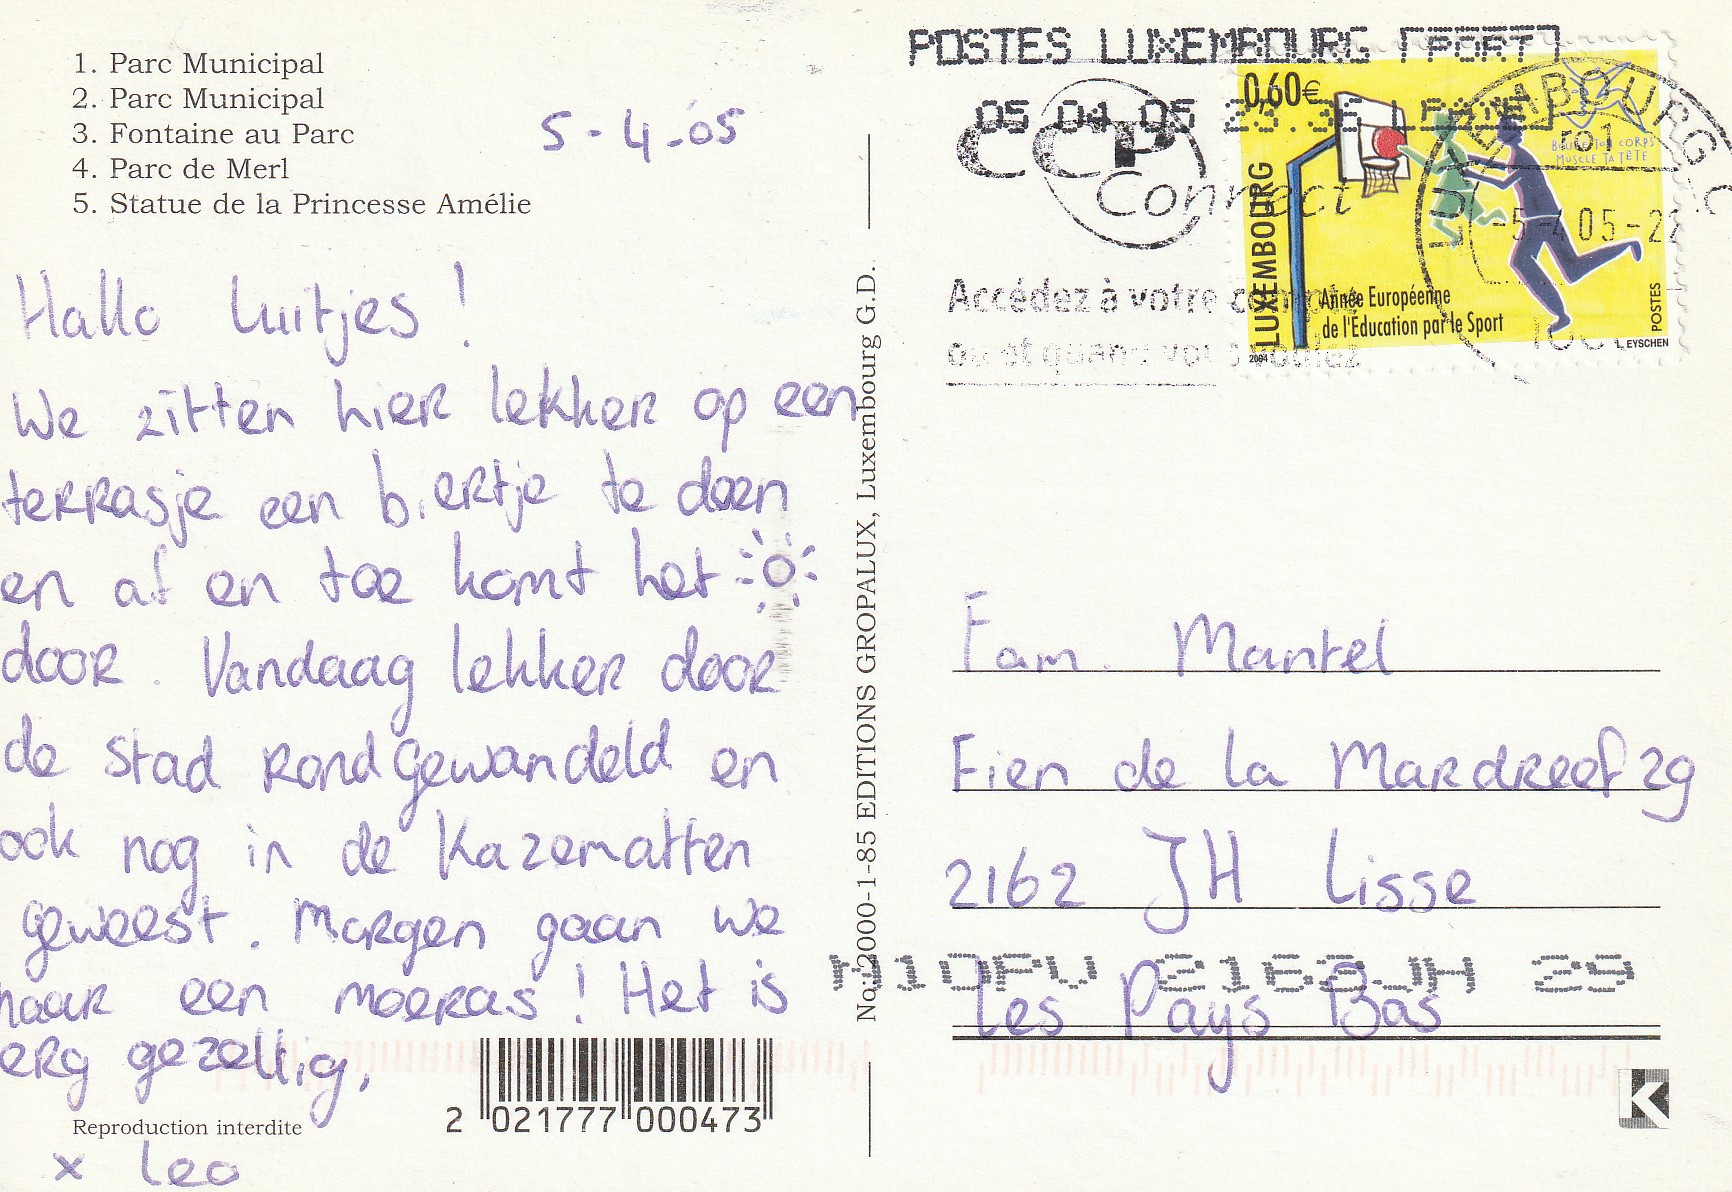 1. Parc Municipal
2. Parc Municipal
3. Fontaine au Parc
4. Parc de Merl
5. Statue de la Princesse Amélie
5-4-05
Hallo Luitjes!
We zitten hier lekker op een
terrasje een biertje te doen
en af en toe komt het
door. Vandaag lekker door
de stad rondgewandeld en
ook nog in de Kazematten
geweest. Morgen gaan we
naar een moeras! Het is
erg gezellig,
x Leo
Reproduction interdite
2 021777 000473
No: 2000-1-85 EDITIONS GROPALUX, Luxembourg G.D.
POSTES LUXEMBOURG
05 04 05
CCP
Connect
Accédez à votre compte
où et quand vous voulez
0,60€
LUXEMBOURG
BOUGE TON CORPS
MUSCLE TA TÊTE
Année Européenne
de l'Education par le Sport
POSTES
2004
L. EYSCHEN
LUXEMBOURG
-5-4 05-22
Fam. Mantel
Fien de la Mardreef 29
2162 JH Lisse
Les Pays Bas
2162JH 29
K